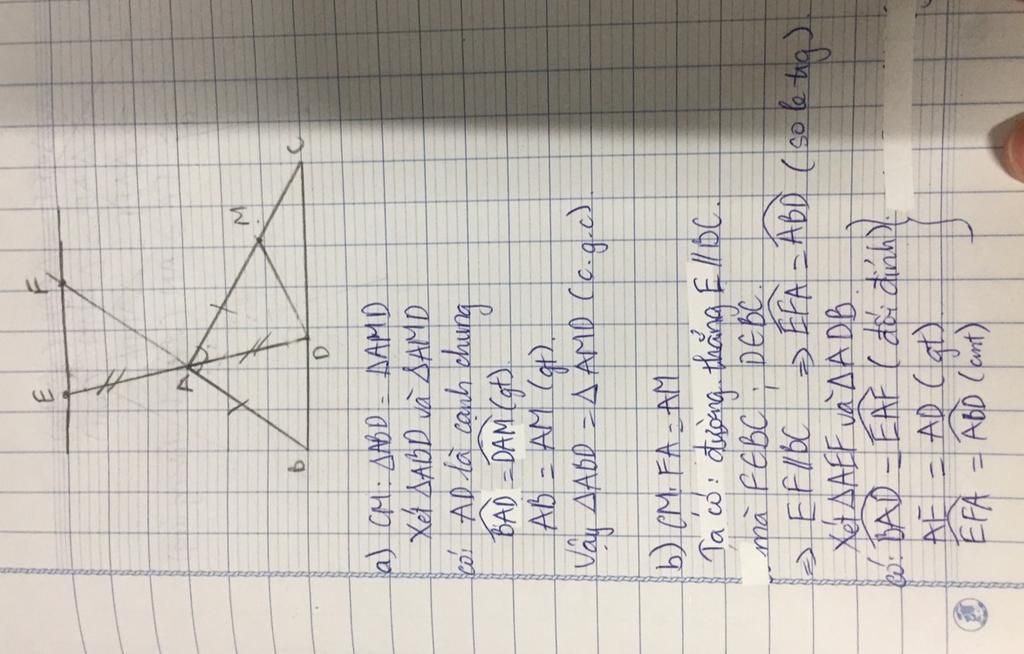 E F
A M
B D C
a) CM: ΔABD = ΔAMD
Xét ΔABD và ΔAMD
có: AD là cạnh chung
BAD = DAM (gt)
AB = AM (gt).
Vậy ΔABD = ΔAMD (c.g.c)
b) CM: FA = AM
Ta có: đường thẳng E // BC.
mà F∈BC ; D∈BC.
⇒ EF // BC ⇒ EFA = ABD (so le trg).
Xét ΔAEF và ΔADB
có: BAD = EAF (đối đỉnh)
AE = AD (gt)
EFA = ABD (cmt)